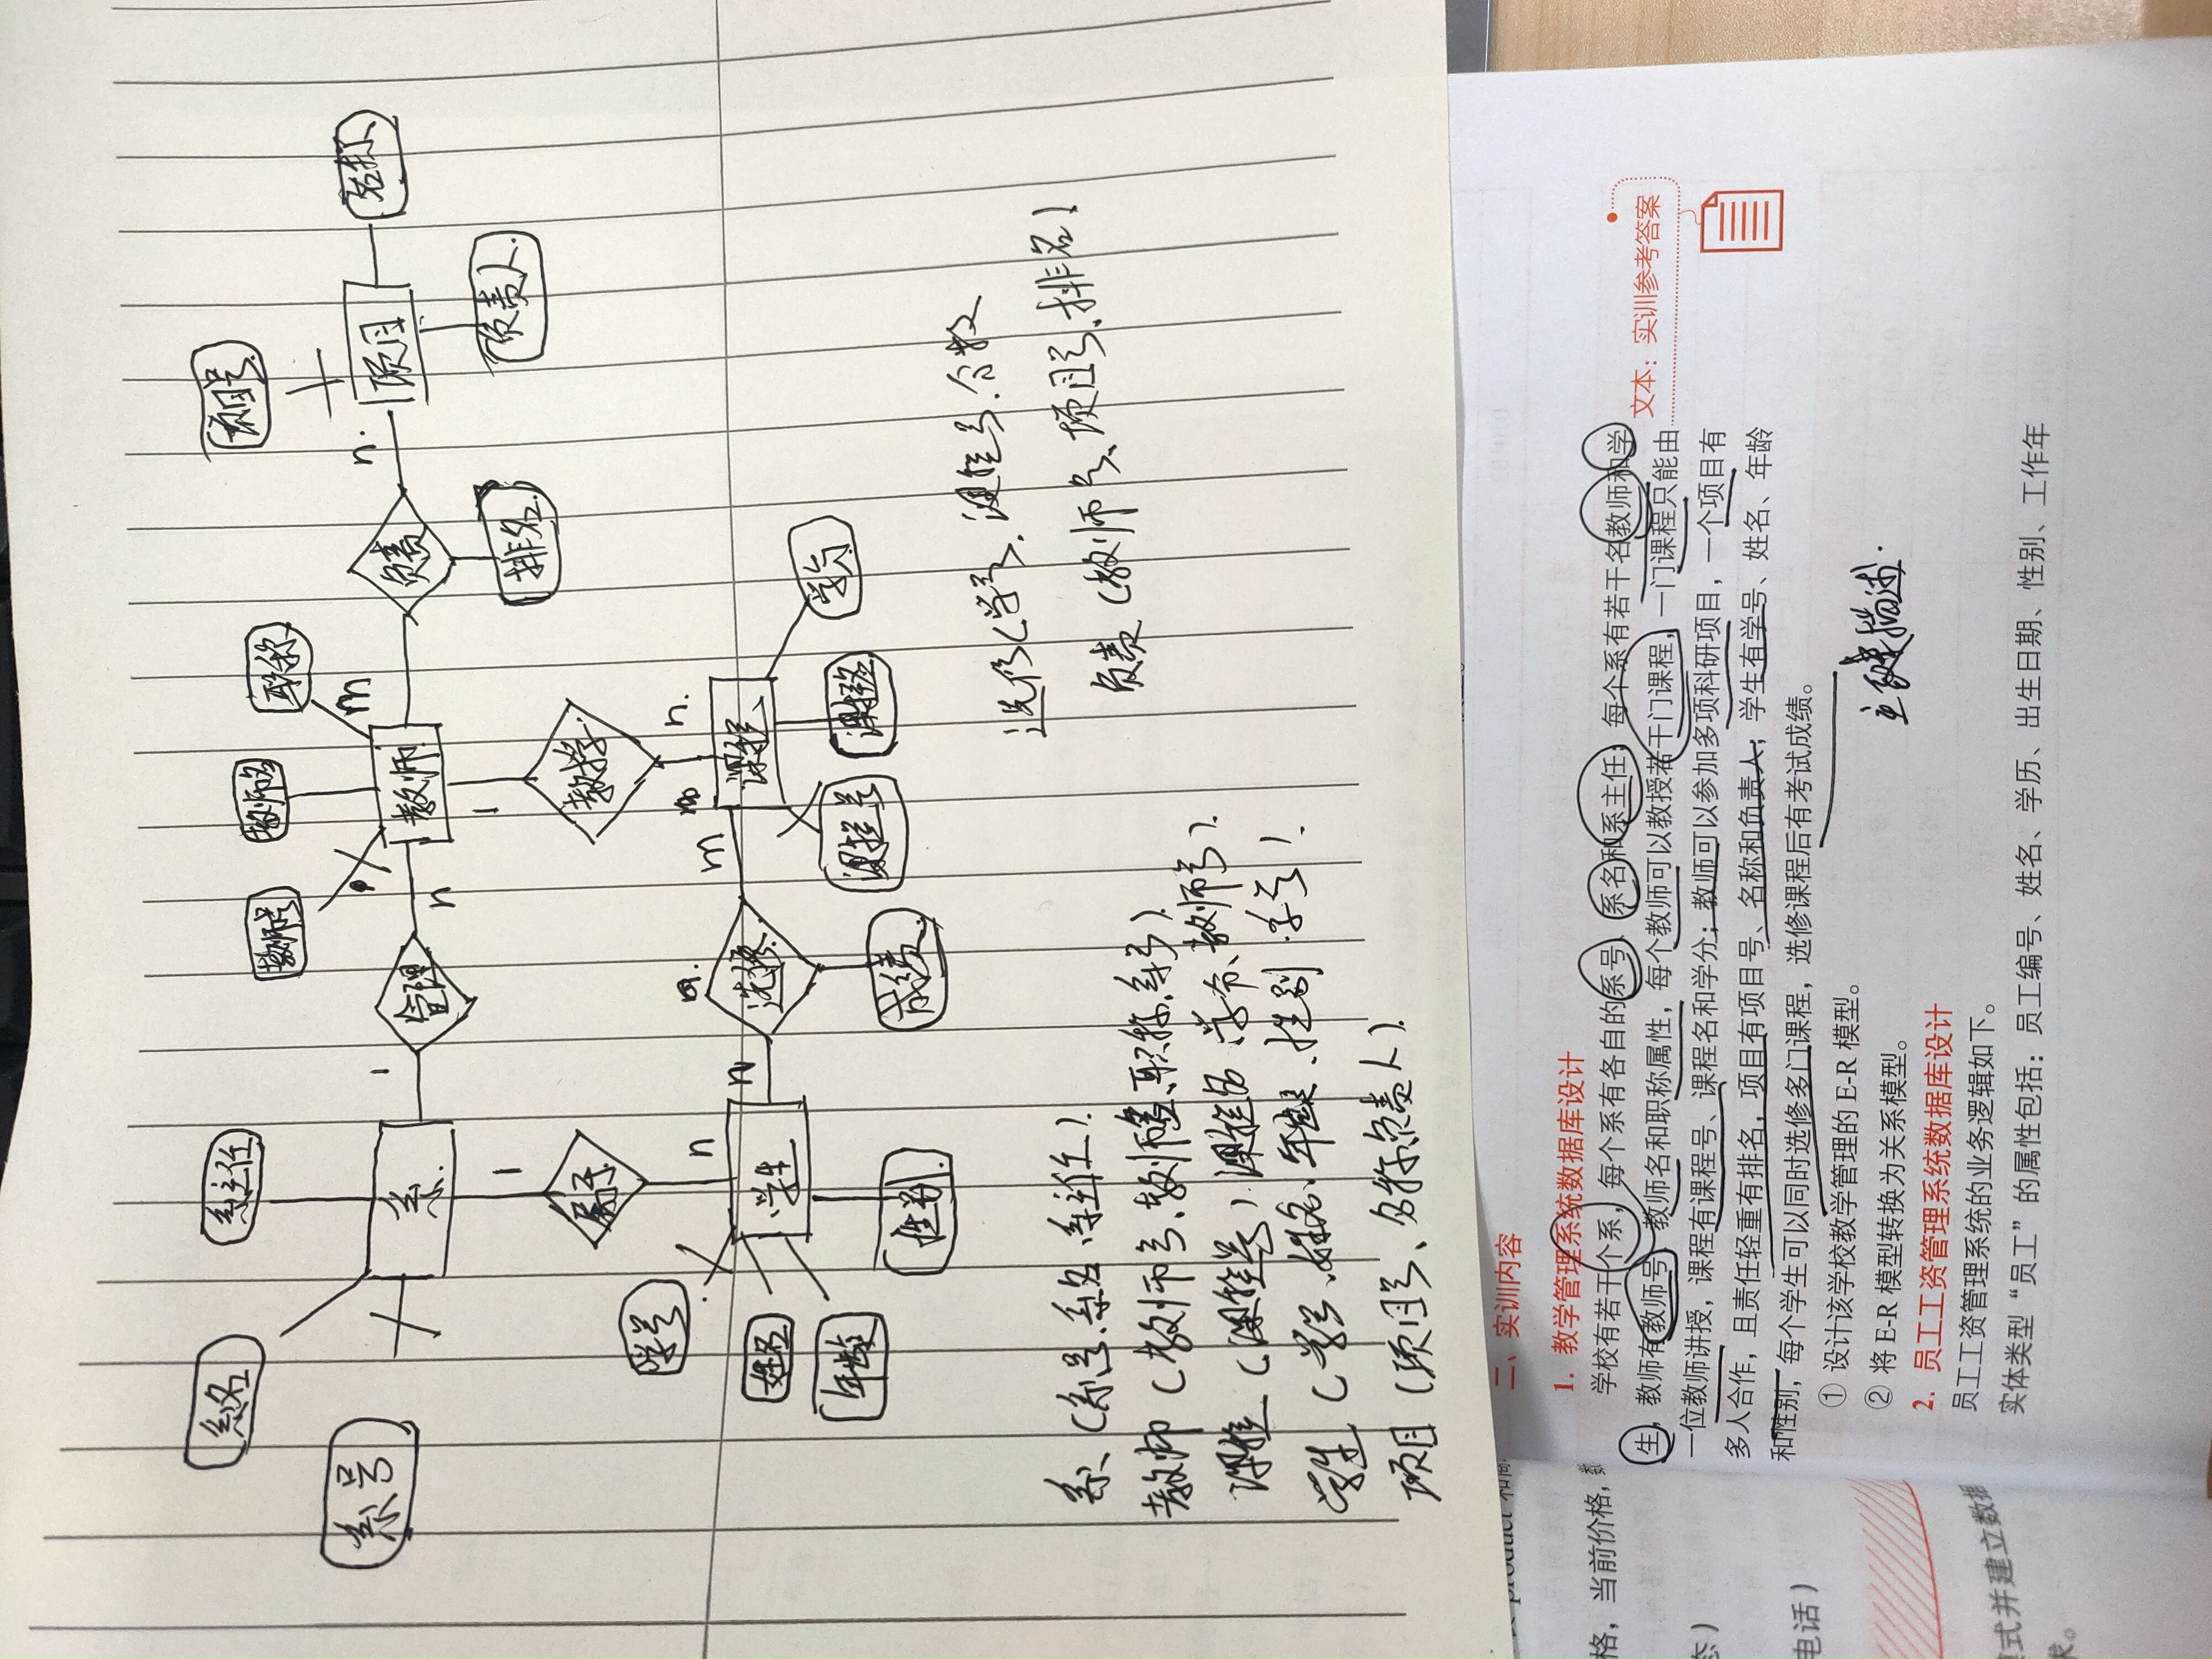 系名
系主任
教师号
教师名
职称
项目号
名称
系号
系
1
管理
n
教师
m
负责
n.
项目
负责人.
排名.
1
属于
n
1
教学
n.
学号
学生
n
选修
m
课程
学分
姓名
年龄
性别.
成绩
课程号
课程名
系(系号.系名.系主任).
教师(教师号、教师名、职称、系号).
课程(课程号)课程名 学分、教师号).
学生(学号、姓名、年龄、性别 .学号).
项目(项目号、名称.负责人).
选修(学号.课程号.分数
负责(教师号、项目号.排名)
二、实训内容
1. 教学管理系统数据库设计
学校有若干个系,每个系有各自的系号、系名和系主任;每个系有若干名教师和学
生,教师有教师号、教师名和职称属性,每个教师可以教授若干门课程,一门课程只能由
一位教师讲授,课程有课程号、课程名和学分;教师可以参加多项科研项目,一个项目有
多人合作,且责任轻重有排名,项目有项目号、名称和负责人;学生有学号、姓名、年龄
和性别,每个学生可以同时选修多门课程,选修课程后有考试成绩。
① 设计该学校教学管理的 E-R 模型。
② 将 E-R 模型转换为关系模型。
文本:实训参考答案
主键描述.
2. 员工工资管理系统数据库设计
员工工资管理系统的业务逻辑如下。
实体类型“员工”的属性包括:员工编号、姓名、学历、出生日期、性别、工作年
格,当前价格,
态)
电话)
模式并建立数据
求。